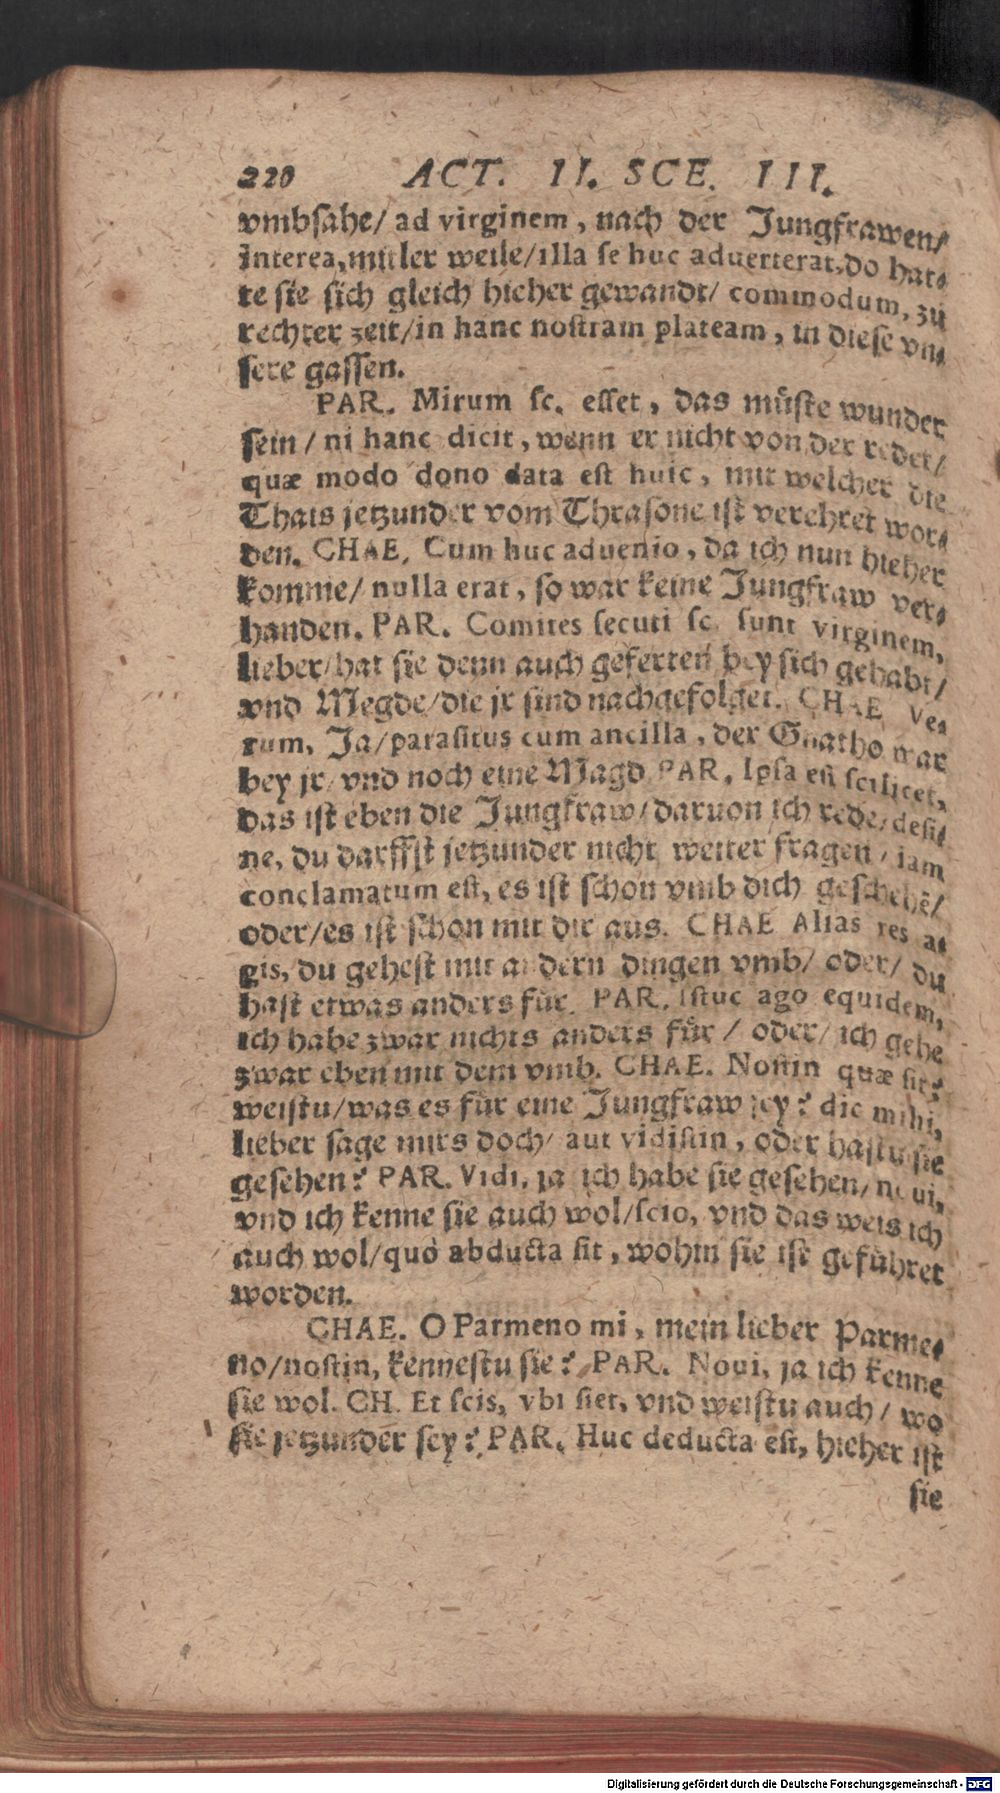 220 ACT. II. SCE. III.
vmbsahe/ ad virginem, nach der Jungfrawen/
Interea, mitler weile/illa se huc aduerterat, do hat⸗
te sie sich gleich hieher gewandt/ commodum, zu
rechter zeit/in hanc nostram plateam, in diese vn⸗
sere gassen.
PAR. Mirum sc. esset, das müste wunder
sein/ ni hanc dicit, wenn er nicht von der redet/
quæ modo dono data est huic, mit welcher die
Thais jetzunder vom Thrasone ist verehret wor⸗
den. CHAE. Cum huc aduenio, da ich nun hieher
komme/ nulla erat, so war keine Jungfraw ver⸗
handen. PAR. Comites secuti sc. sunt virginem,
lieber/hat sie denn auch geferten bey sich gehabt/
vnd Megde/die jr sind nachgefolget. CHAE Ve⸗
rum, Ja/parasitus cum ancilla, der Gnatho war
bey jr/ vnd noch eine Magd PAR. Ipsa est scilicet,
das ist eben die Jungfraw/daruon ich rede/desi⸗
ne, du darffst jetzunder nicht weiter fragen/ iam
conclamatum est, es ist schon vmb dich geschehẽ/
oder/es ist schon mit dir aus. CHAE Alias res a⸗
gis, du gehest mit andern dingen vmb/ oder/ du
hast etwas anders für. PAR. Istuc ago equidem,
ich habe zwar nichts anders für/ oder/ ich gehe
zwar eben mit dem vmb. CHAE. Nostin quæ sit,
weistu/was es für eine Jungfraw sey? dic mihi,
lieber sage mirs doch/ aut vidistin, oder hastu sie
gesehen? PAR. Vidi, ja ich habe sie gesehen/ noui,
vnd ich kenne sie auch wol/scio, vnd das weis ich
auch wol/quò abducta sit, wohin sie ist geführet
worden.
CHAE. O Parmeno mi, mein lieber Parme⸗
no/nostin, kennestu sie? PAR. Noui, ja ich kenne
sie wol. CH. Et scis, vbi siet, vnd weistu auch/ wo
sie jetzunder sey? PAR. Huc deducta est, hieher ist
sie
Digitalisierung gefördert durch die Deutsche Forschungsgemeinschaft - DFG